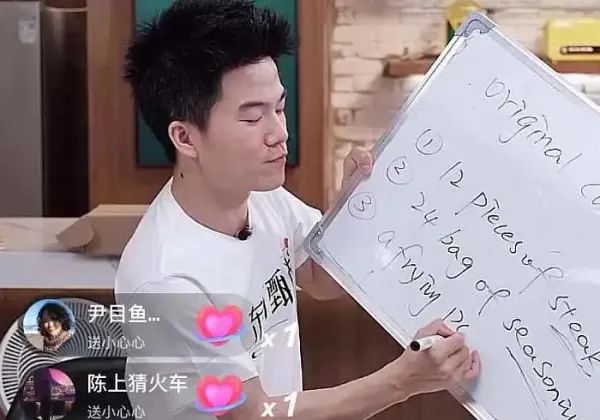 original
① 12 pieces of steak
② 24 bag of seasonin
③ a frying
甄
尹目鱼...
送小心心
x1
陈上猜火车
送小心心
x1